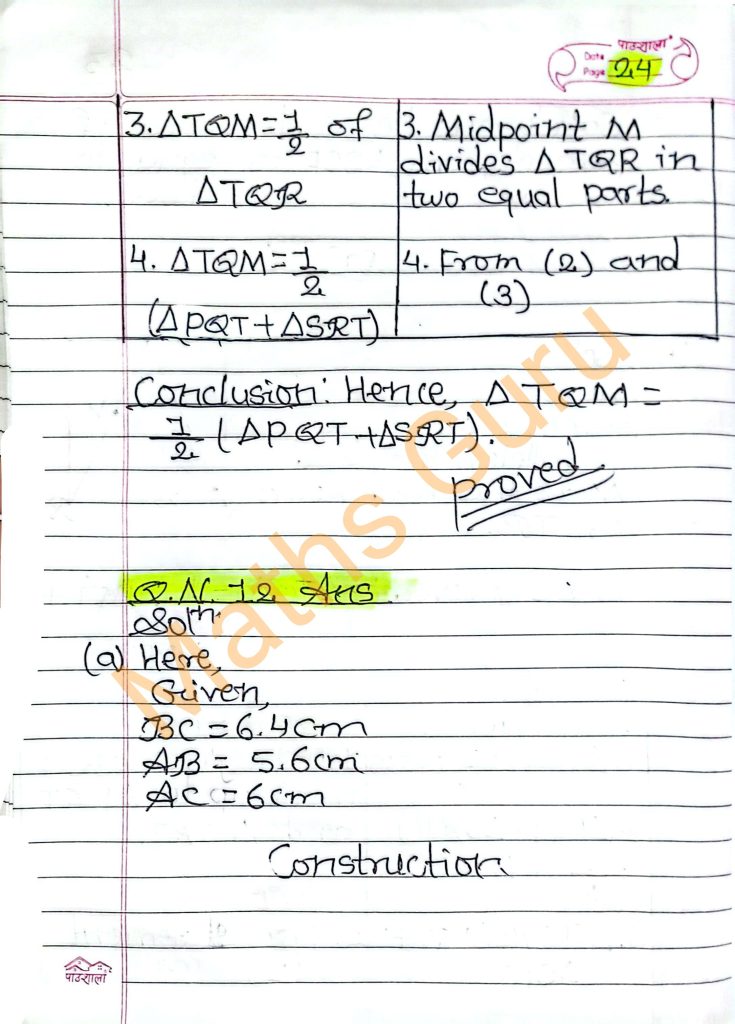 पाठशाला
Date
Page 24
3. ΔTQM = 1/2 of
ΔTQR
3. Midpoint M
divides Δ TQR in
two equal parts.
4. ΔTQM = 1/2
(ΔPQT + ΔSRT)
4. From (2) and
(3)
Conclusion: Hence, Δ TQM =
1/2 (ΔPQT + ΔSRT).
proved
Q.N. 12 Ans
Solⁿ.
(a) Here,
Given,
BC = 6.4cm
AB = 5.6cm
AC = 6cm
Construction
Maths Guru
पाठशाला